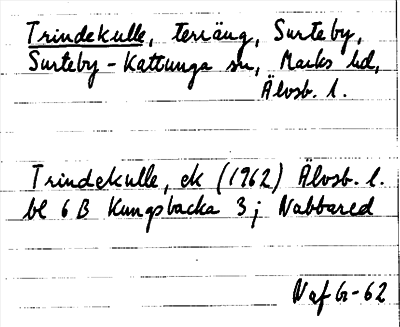 Trindekulle, terräng, Surteby,
Surteby-Kattunga sn, Marks hd,
Älvsb. l.
Trindekulle, ek (1962) Älvsb. l.
bl 6 B Kungsbacka 3j Nabbared
Naf G-62